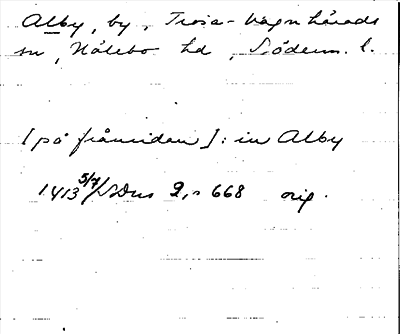 Alby, by, Trosa-Vagnhärads
sn, Hölebo hd, Söderm. l.
[på frånsidan]: in Alby
1413 5/7 SDns 2, s 668 orig.